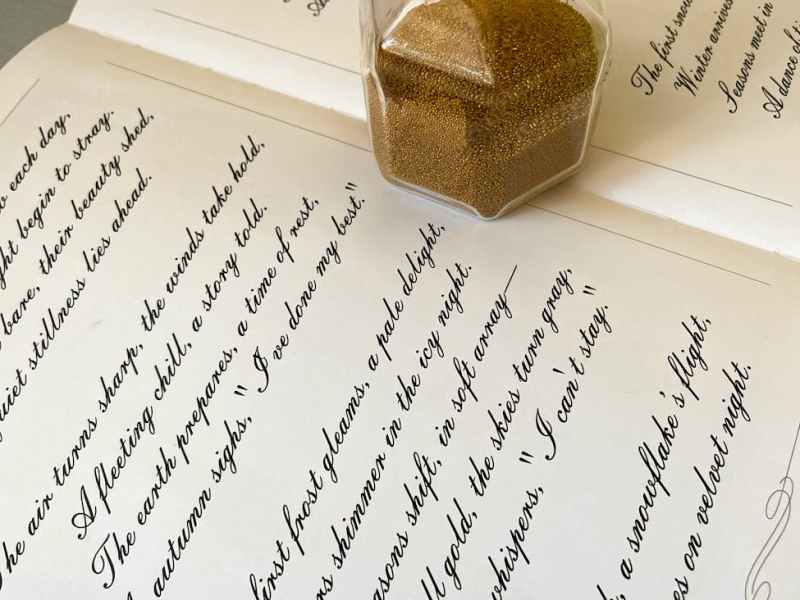 each day,
begin to stray.
bare, their beauty shed,
stillness lies ahead.
The air turns sharp, the winds take hold,
A fleeting chill, a story told.
The earth prepares, a time of rest,
autumn sighs, "I've done my best."
first frost gleams, a pale delight,
shimmer in the icy night.
shift, in soft array—
gold, the skies turn gray,
whispers, "I can't stay."
a snowflake's flight,
on velvet night.
The first
Winter arrives
Seasons meet in
A dance of